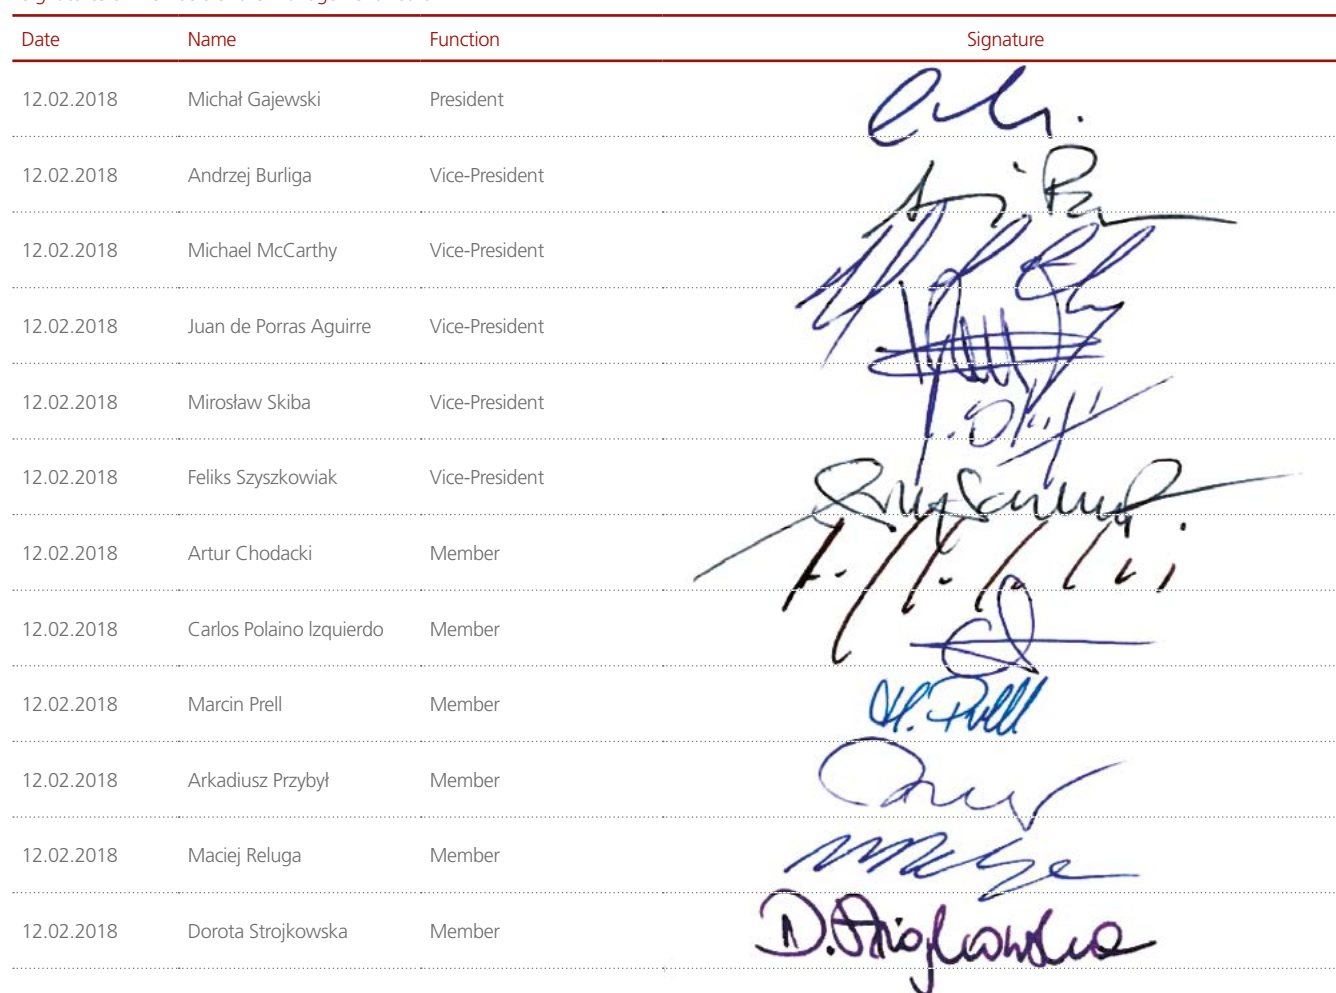 Date Name Function Signature
12.02.2018 Michał Gajewski President
12.02.2018 Andrzej Burliga Vice-President
12.02.2018 Michael McCarthy Vice-President
12.02.2018 Juan de Porras Aguirre Vice-President
12.02.2018 Mirosław Skiba Vice-President
12.02.2018 Feliks Szyszkowiak Vice-President
12.02.2018 Artur Chodacki Member
12.02.2018 Carlos Polaino Izquierdo Member
12.02.2018 Marcin Prell Member M. Prell
12.02.2018 Arkadiusz Przybył Member
12.02.2018 Maciej Reluga Member
12.02.2018 Dorota Strojkowska Member D. Strojkowska